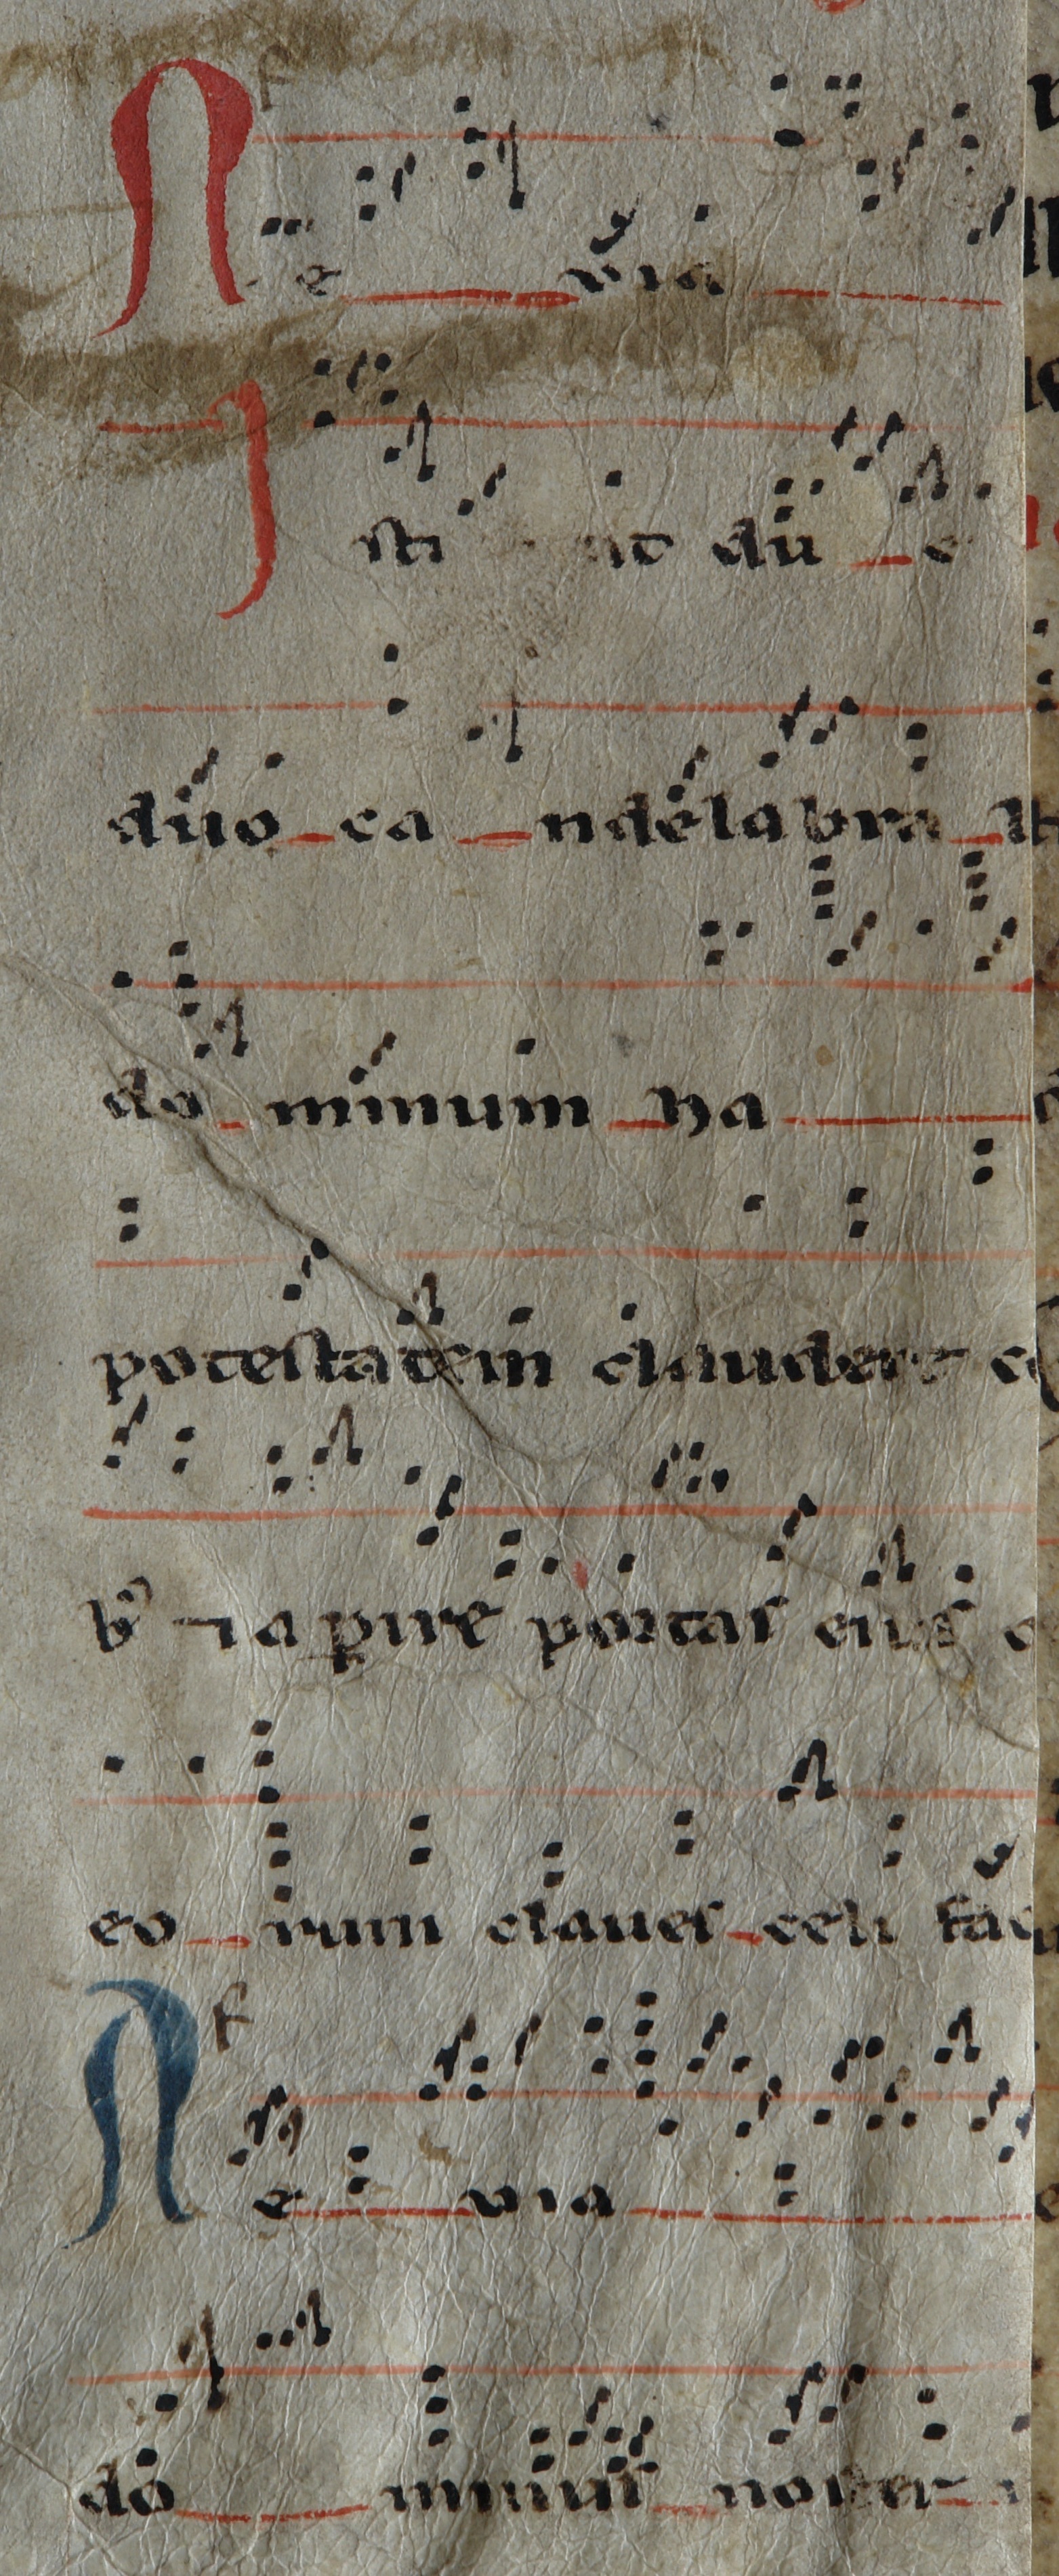 A e via
I sti sūt du e
duo ca ndelabra
do minum ha
potestatem claudere
b⁹ ⁊ aperire portas eius
eo rum claues celi fac
F
A e via
do minus noster